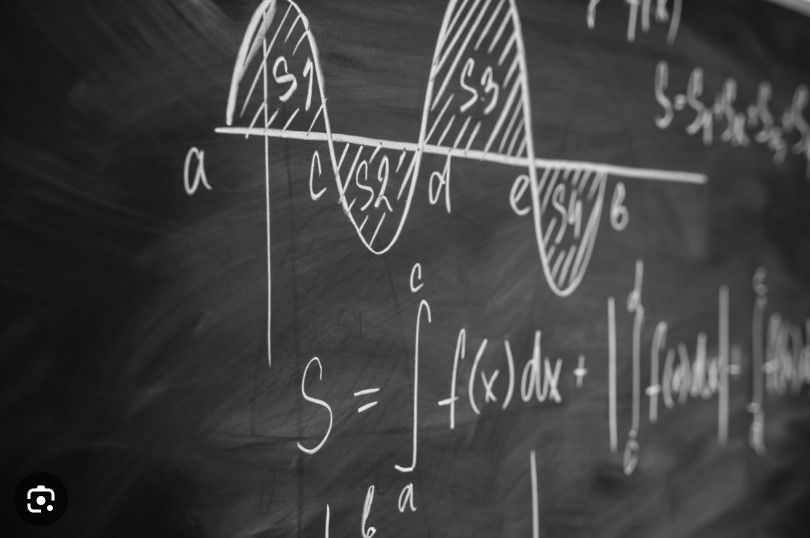 f(x)
S=S1+S2+S3+S4
S1 S3
a c S2 d e S4 b
S = ∫ₐᶜ f(x)dx + |∫ f(x)dx| + ∫ f(x)
b